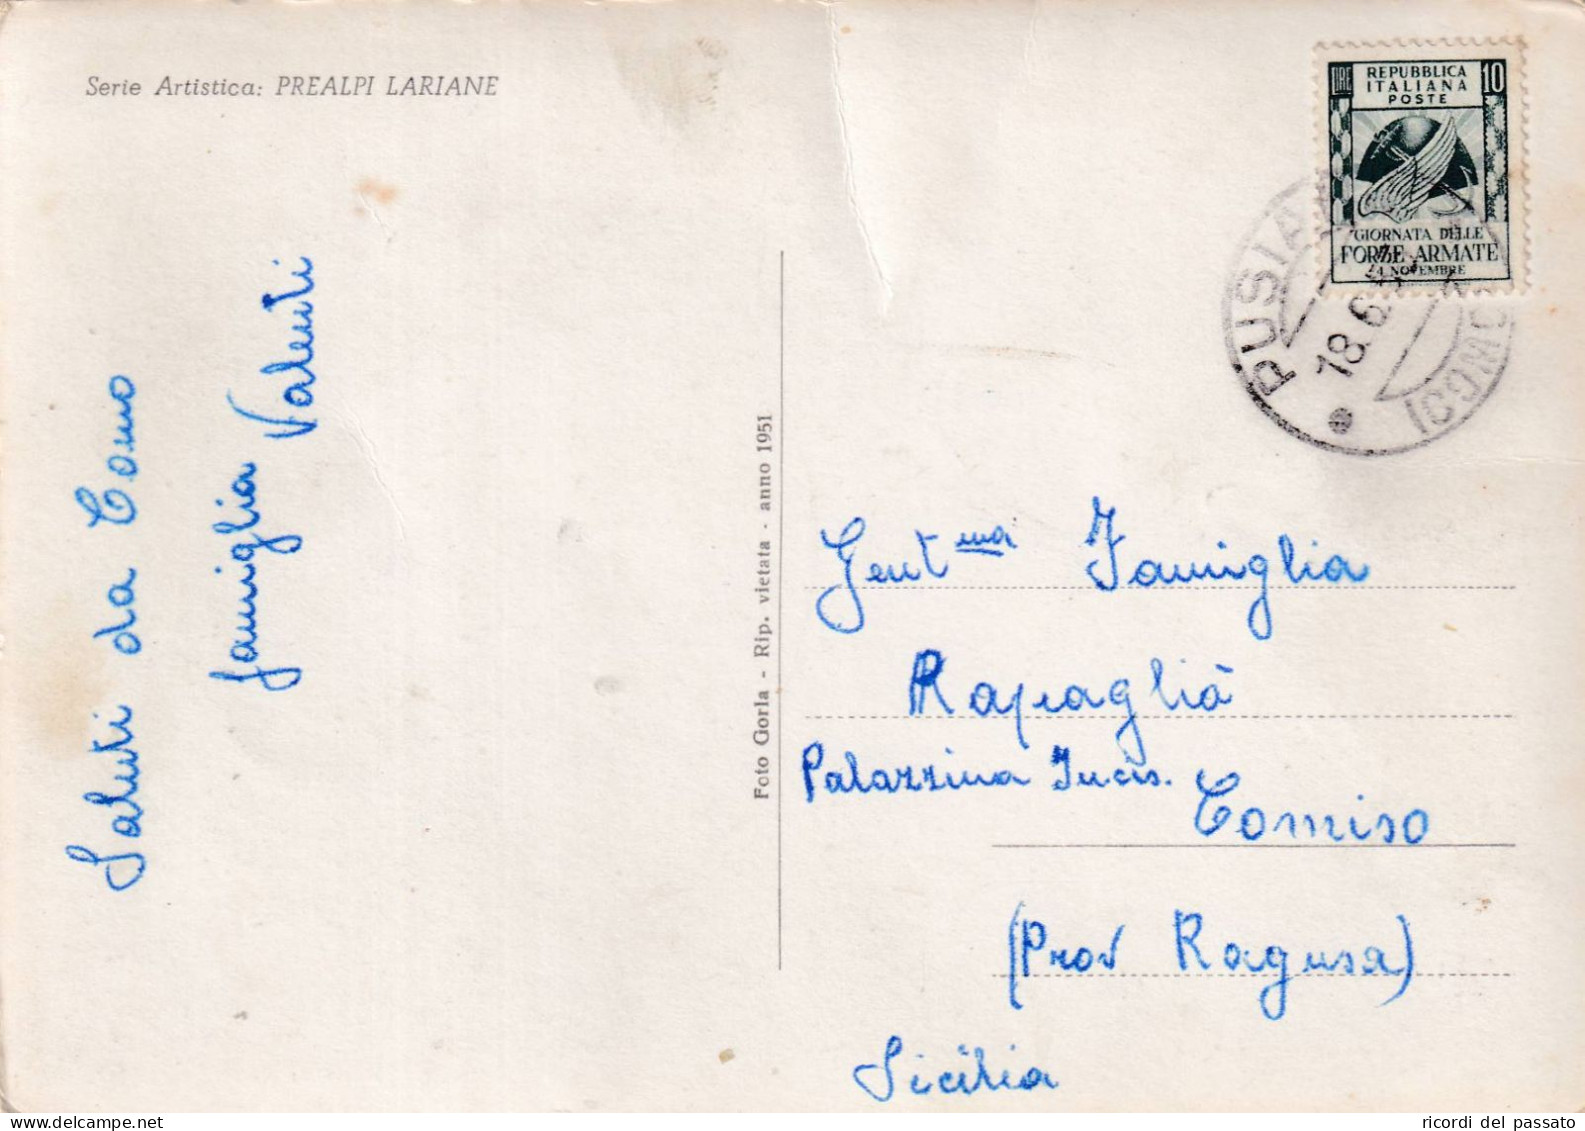 Serie Artistica: PREALPI LARIANE
Saluti da Como
famiglia Valenti
Foto Gorla - Rip. vietata - anno 1951
LIRE
REPUBBLICA
ITALIANA
POSTE
10
GIORNATA DELLE
FORZE ARMATE
4 NOVEMBRE
PUSIA
(COMO)
18.6
Gent.ma Famiglia
Rapaglià
Palazzina Incis.
Comiso
(Prov Ragusa)
Sicilia
ricordi del passato